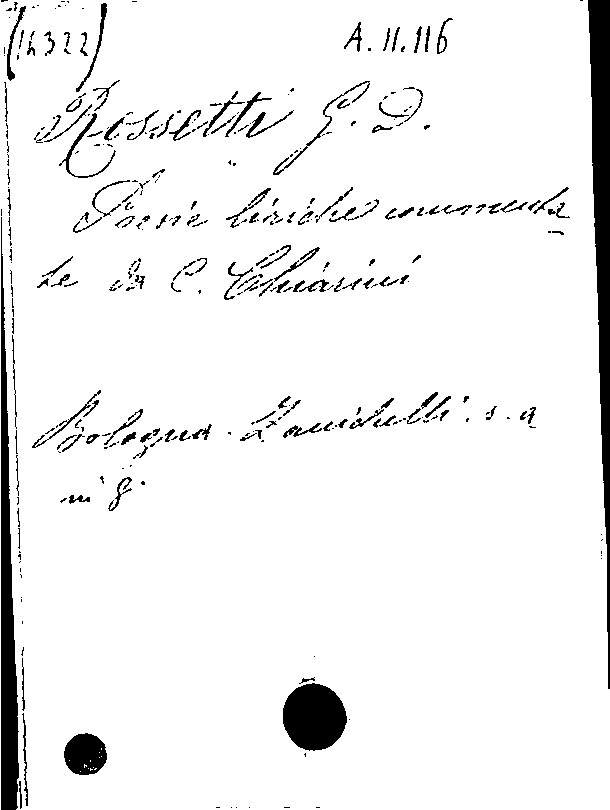 (14322)
A.11.116
Rossetti G. D.
Poesie liriche
te da C. Chiarini
Bologna - Zanichelli. s. a
in 8.